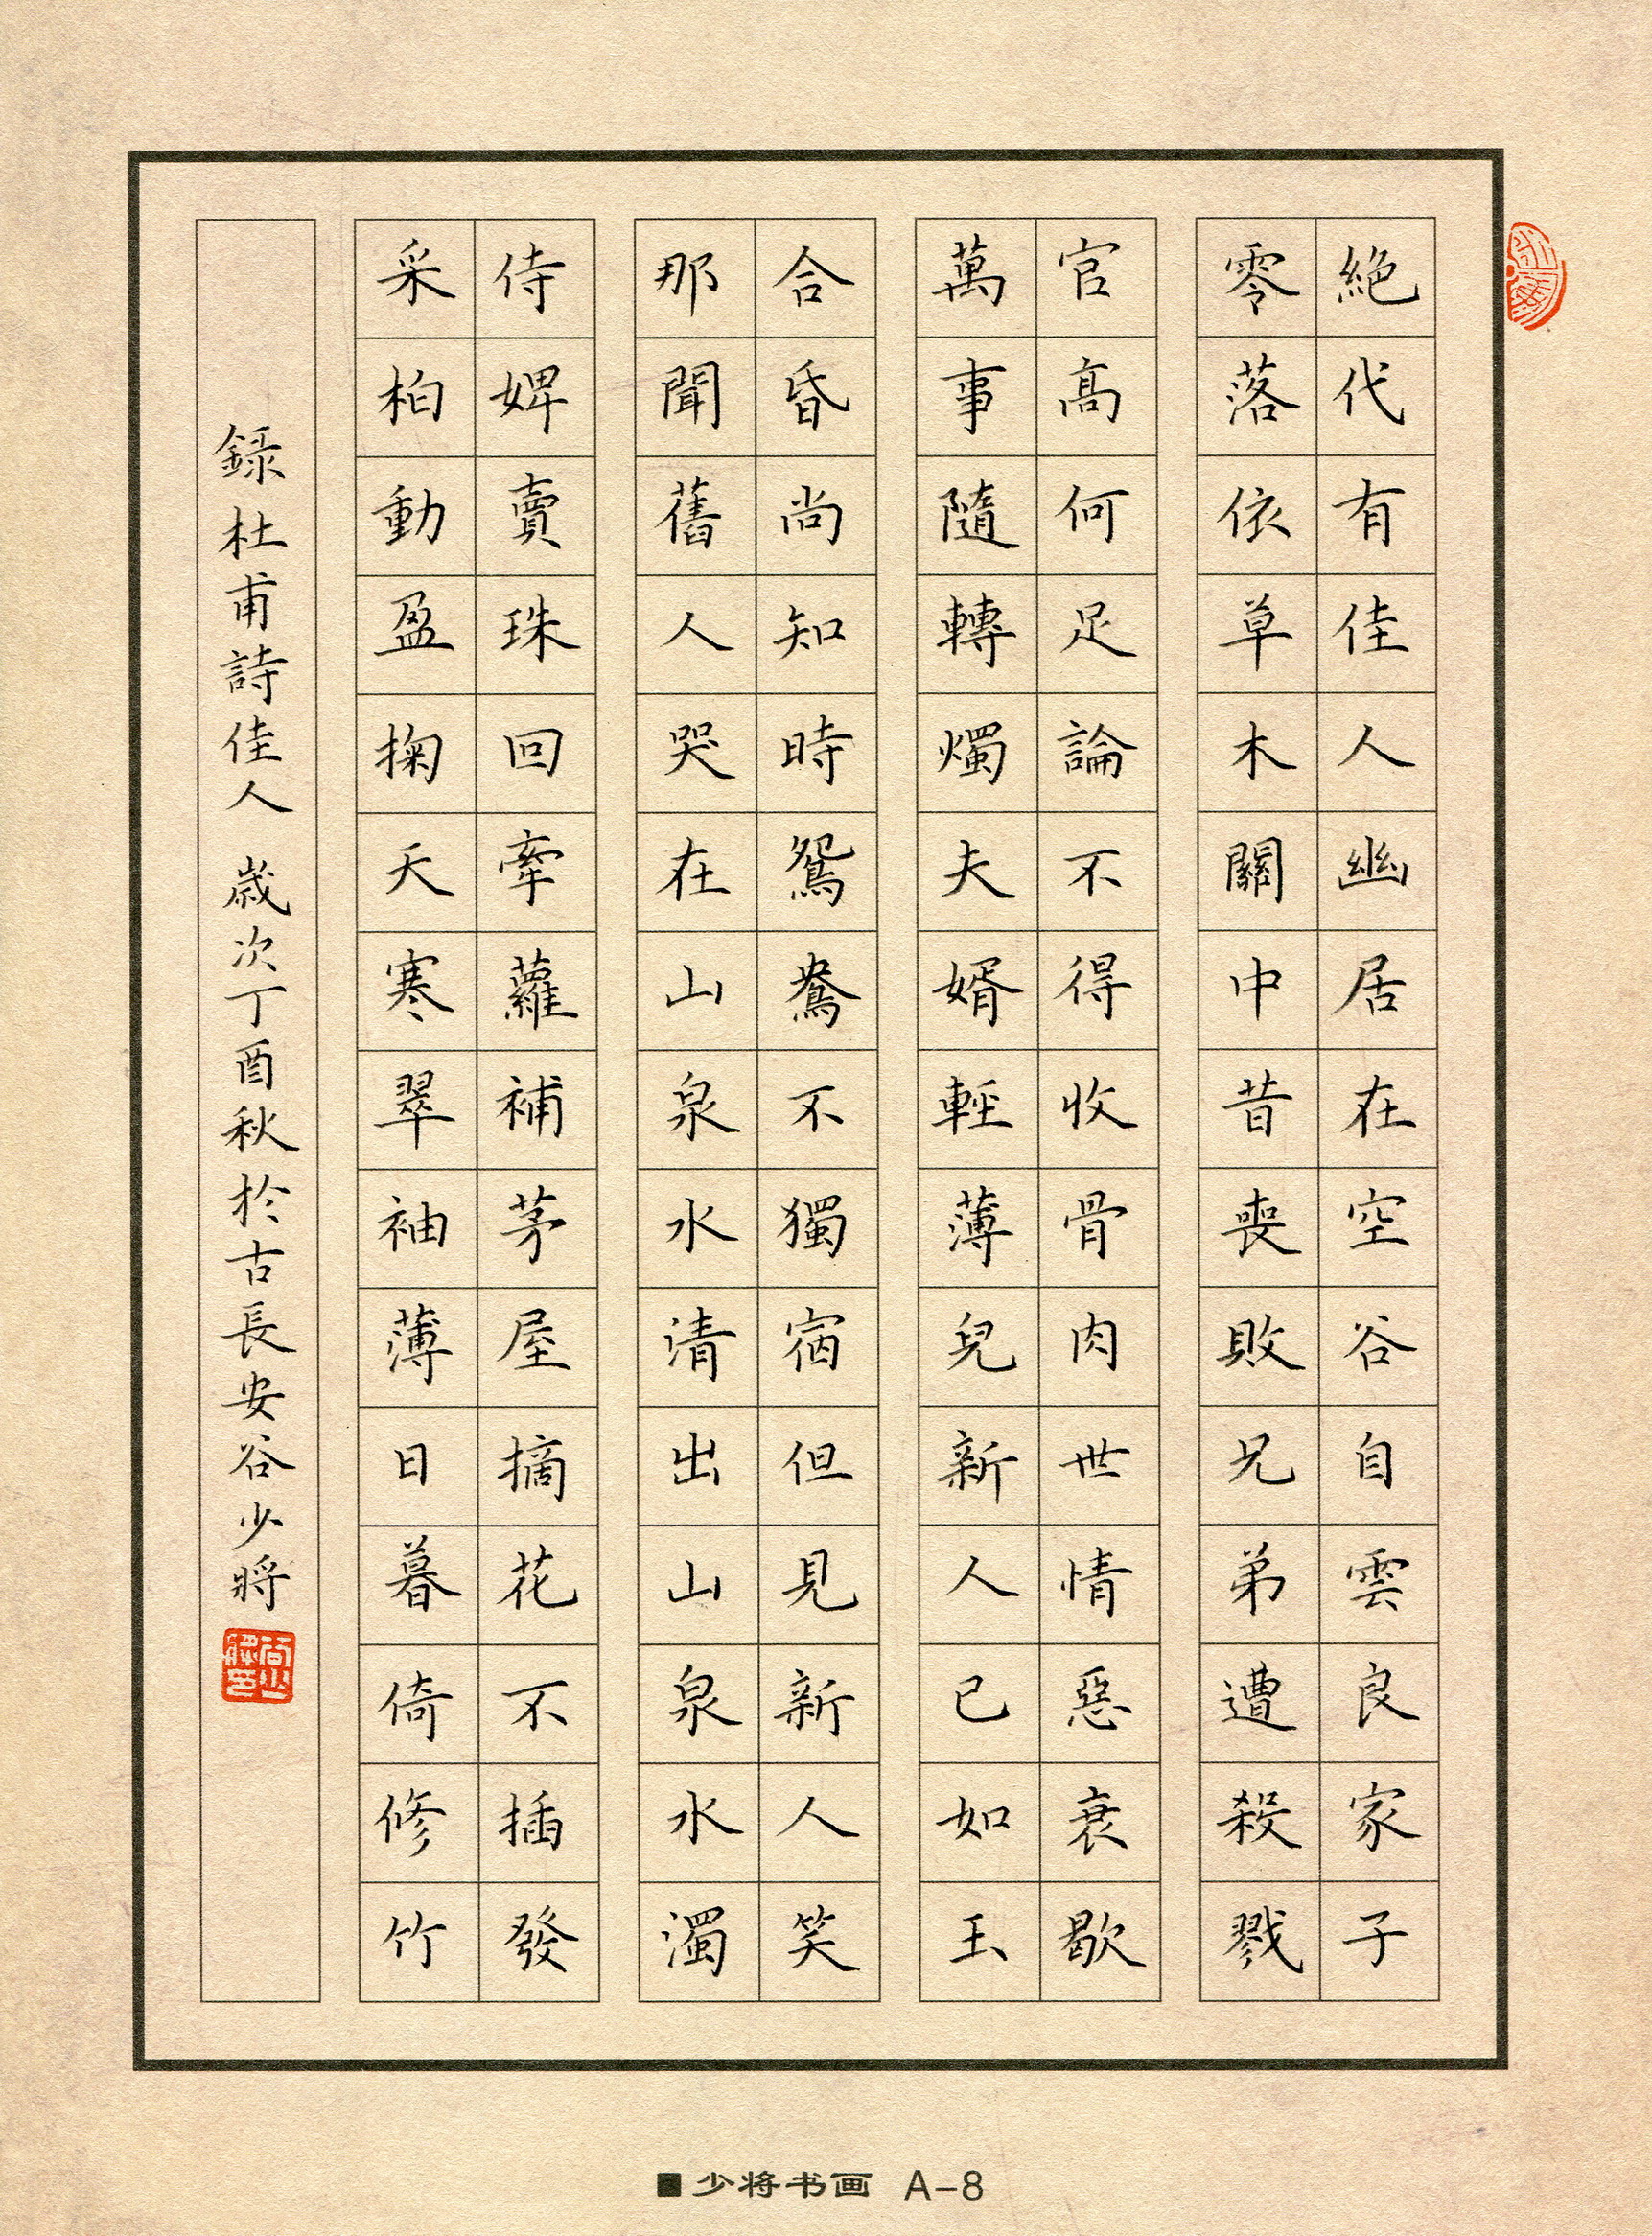 絶代有佳人幽居在空谷自雲良家子
零落依草木關中昔喪敗兄弟遭殺戮
官高何足論不得收骨肉世情惡衰歇
萬事隨轉燭夫婿輕薄兒新人已如玉
合昏尚知時鴛鴦不獨宿但見新人笑
那聞舊人哭在山泉水清出山泉水濁
侍婢賣珠回牽蘿補茅屋摘花不插發
采柏動盈掬天寒翠袖薄日暮倚修竹
録杜甫詩佳人 歲次丁酉秋於古長安谷少將
■少将书画 A-8